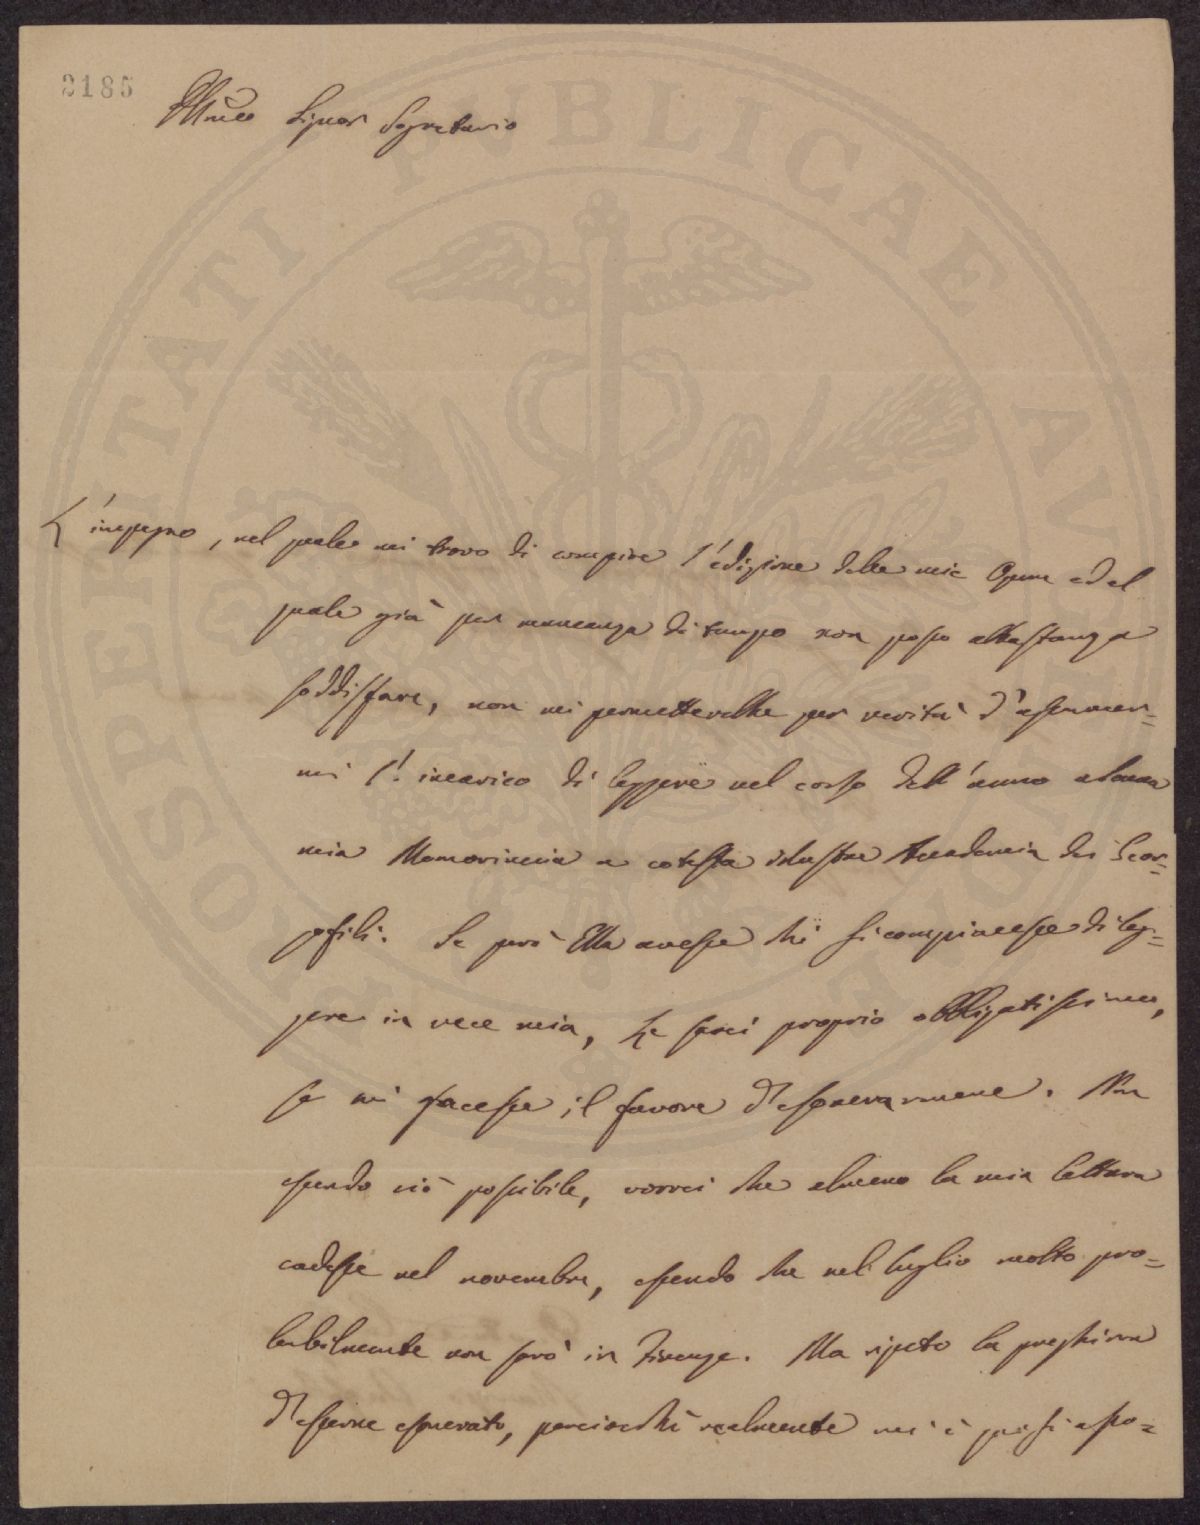 2185
Illmo Signor Segretario
PROSPERITATI PUBLICAE AUGENDAE
L'impegno, nel quale mi trovo di compire l'edizione delle mie Opere ed al
quale già per mancanza di tempo non posso abbastanza
soddisfare, non mi permetterebbe per verità d'assumer=
mi l'incarico di leggere nel corso dell'anno alcuna
mia Memoriuccia a cotesta illustre Accademia dei Geor=
gofili. Se però Ella avesse chi si compiacesse di leg=
gere in vece mia, Le sarei proprio obbligatissimo,
se mi facesse il favore d'esonerarmene. Non
essendo ciò possibile, vorrei che almeno la mia lettura
cadesse nel novembre, essendo che nel luglio molto pro=
babilmente non sarò in Firenze. Ma ripeto la preghiera
d'esserne esonerato, perciocchè realmente mi è quasi impo=